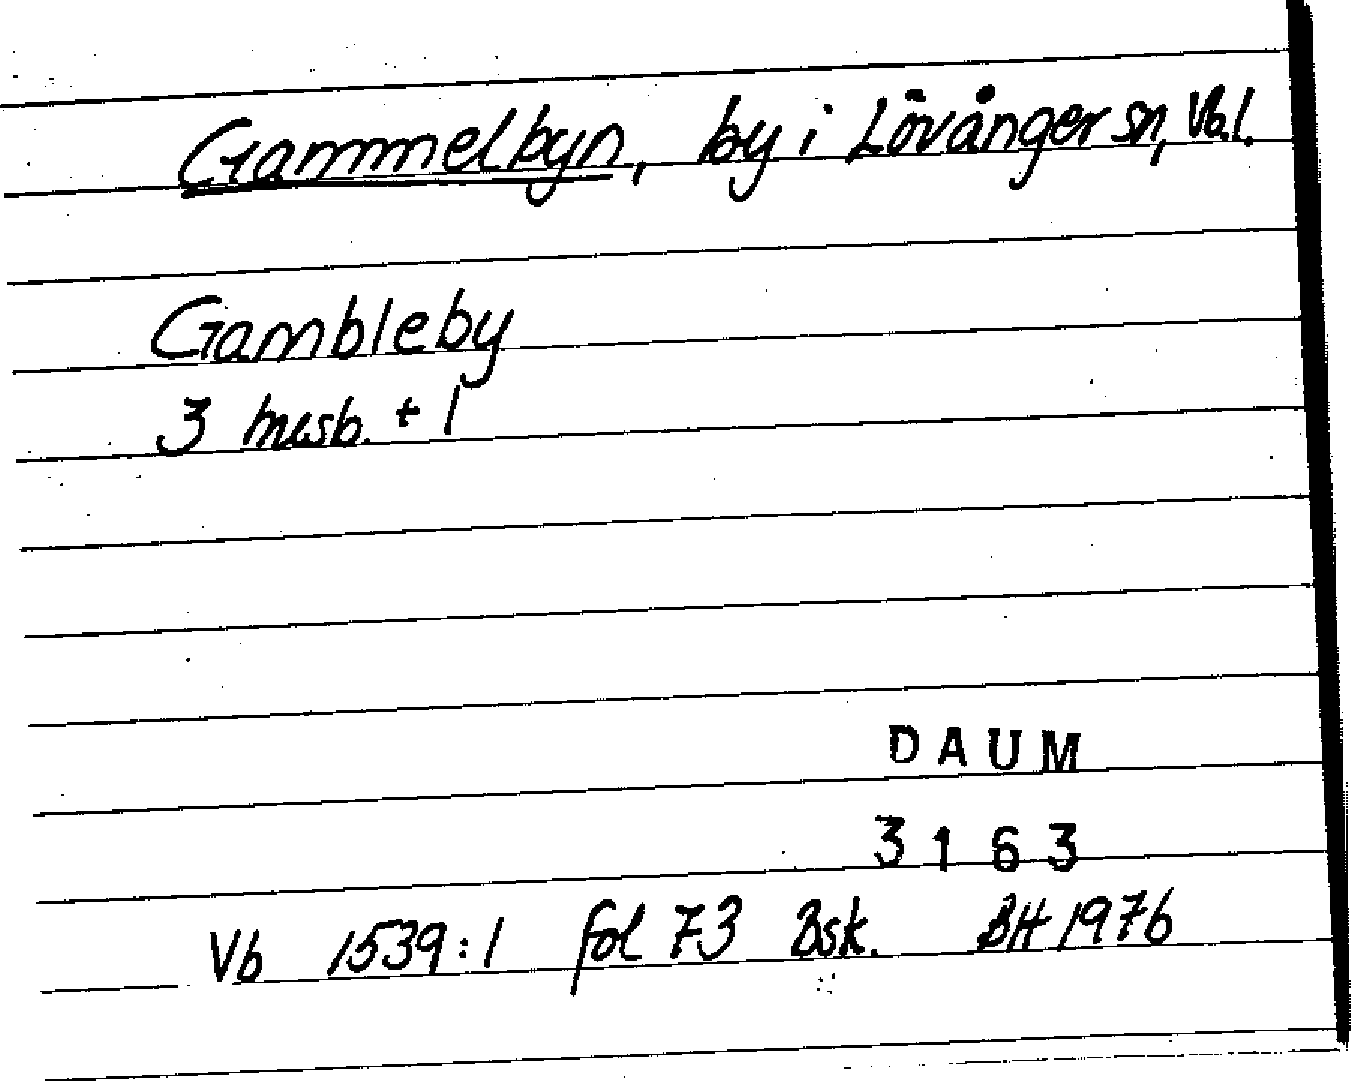 Gammelbyn, by i Lövånger sn, Vb.l.
Gambleby
3 husb. + 1
DAUM
3163
Vb 1539:1 fol 73 Bsk. BH 1976